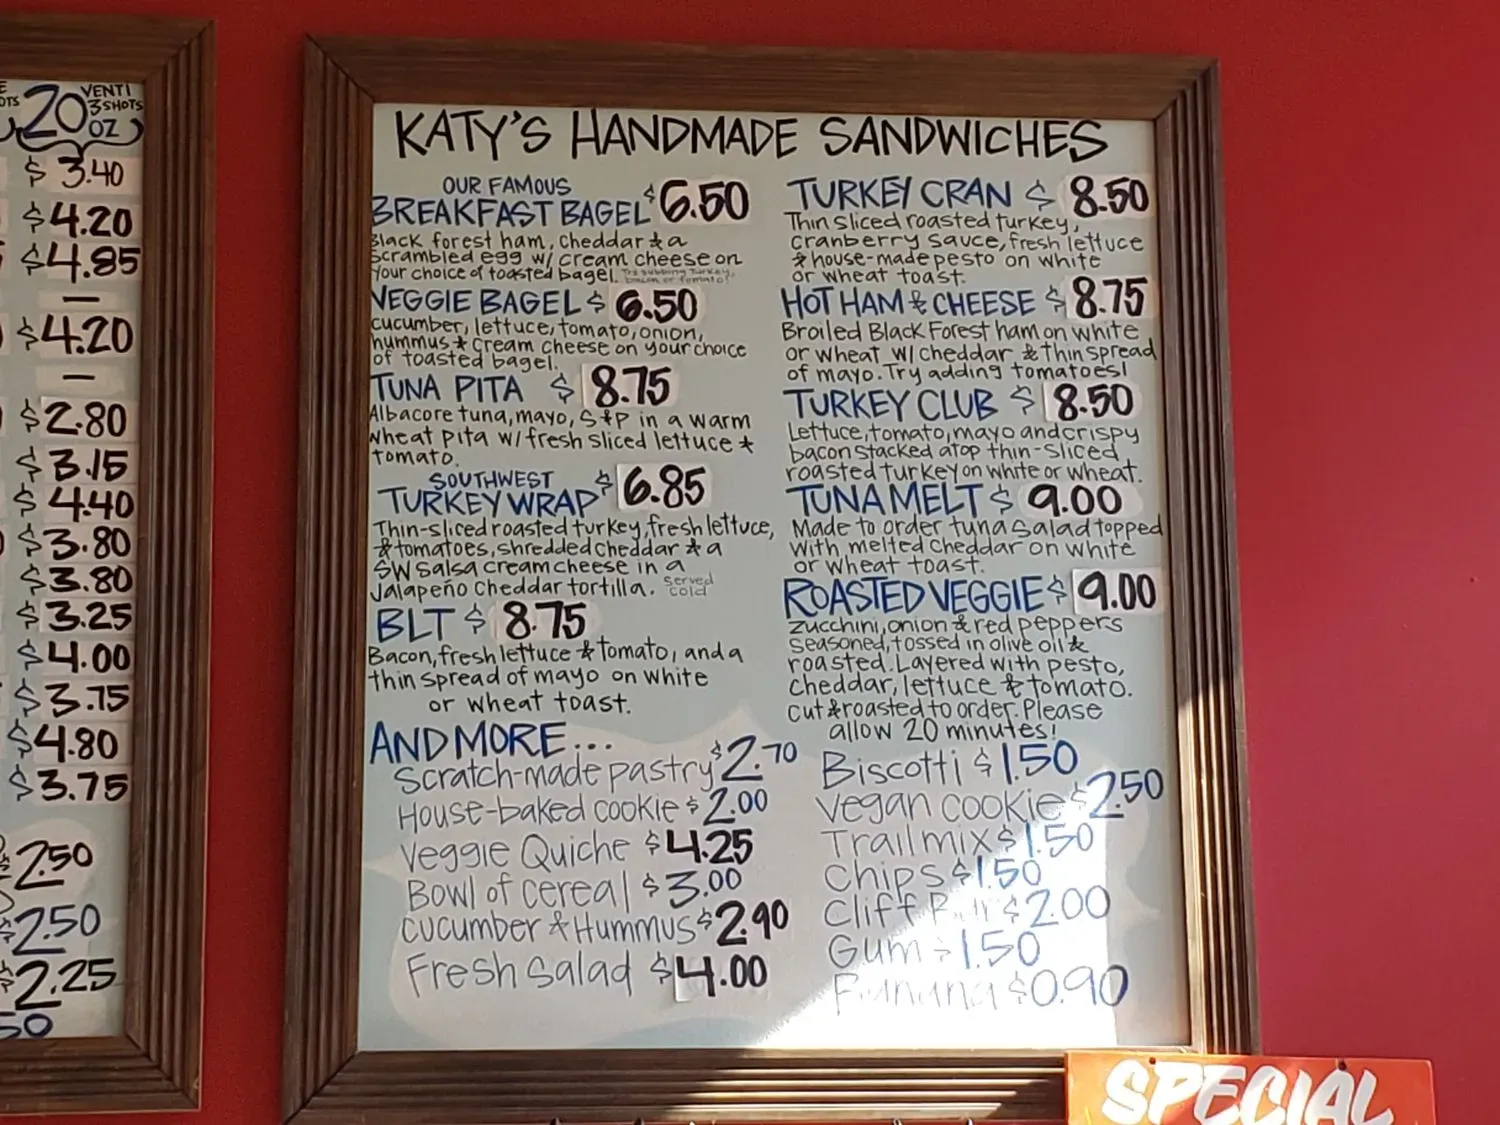 VENTI
20 3 SHOTS
OZ
$ 3.40
$4.20
$4.85
—
$4.20
—
$2.80
$3.15
$4.40
$3.80
$3.80
$3.25
$4.00
$3.75
$4.80
$3.75
$2.50
$2.50
$2.25
50
KATY'S HANDMADE SANDWICHES
OUR FAMOUS
BREAKFAST BAGEL $6.50
Black forest ham, cheddar & a
scrambled egg w/ cream cheese on
your choice of toasted bagel. Try subbing turkey,
bacon or tomato!
VEGGIE BAGEL $ 6.50
cucumber, lettuce, tomato, onion,
hummus & cream cheese on your choice
of toasted bagel.
TUNA PITA $ 8.75
Albacore tuna, mayo, S&P in a warm
wheat pita w/ fresh sliced lettuce &
tomato.
SOUTHWEST
TURKEY WRAP $6.85
Thin-sliced roasted turkey, fresh lettuce,
& tomatoes, shredded cheddar & a
SW salsa cream cheese in a
jalapeño cheddar tortilla. served
cold
BLT $ 8.75
Bacon, fresh lettuce & tomato, and a
thin spread of mayo on white
or wheat toast.
AND MORE...
Scratch-made pastry $2.70
House-baked cookie $2.00
Veggie Quiche $4.25
Bowl of cereal $3.00
Cucumber & Hummus $2.90
Fresh Salad $4.00
TURKEY CRAN $ 8.50
Thin sliced roasted turkey,
cranberry sauce, fresh lettuce
& house-made pesto on white
or wheat toast.
HOT HAM & CHEESE $ 8.75
Broiled Black Forest ham on white
or wheat w/ cheddar & thin spread
of mayo. Try adding tomatoes!
TURKEY CLUB $ 8.50
Lettuce, tomato, mayo and crispy
bacon stacked atop thin-sliced
roasted turkey on white or wheat.
TUNA MELT $ 9.00
Made to order tuna salad topped
with melted cheddar on white
or wheat toast.
ROASTED VEGGIE $ 9.00
zucchini, onion & red peppers
seasoned, tossed in olive oil &
roasted. Layered with pesto,
cheddar, lettuce & tomato.
cut & roasted to order. Please
allow 20 minutes!
Biscotti $1.50
vegan cookie $2.50
Trail mix $1.50
Chips $1.50
Cliff Bar $2.00
Gum $1.50
Banana $0.90
SPECIAL